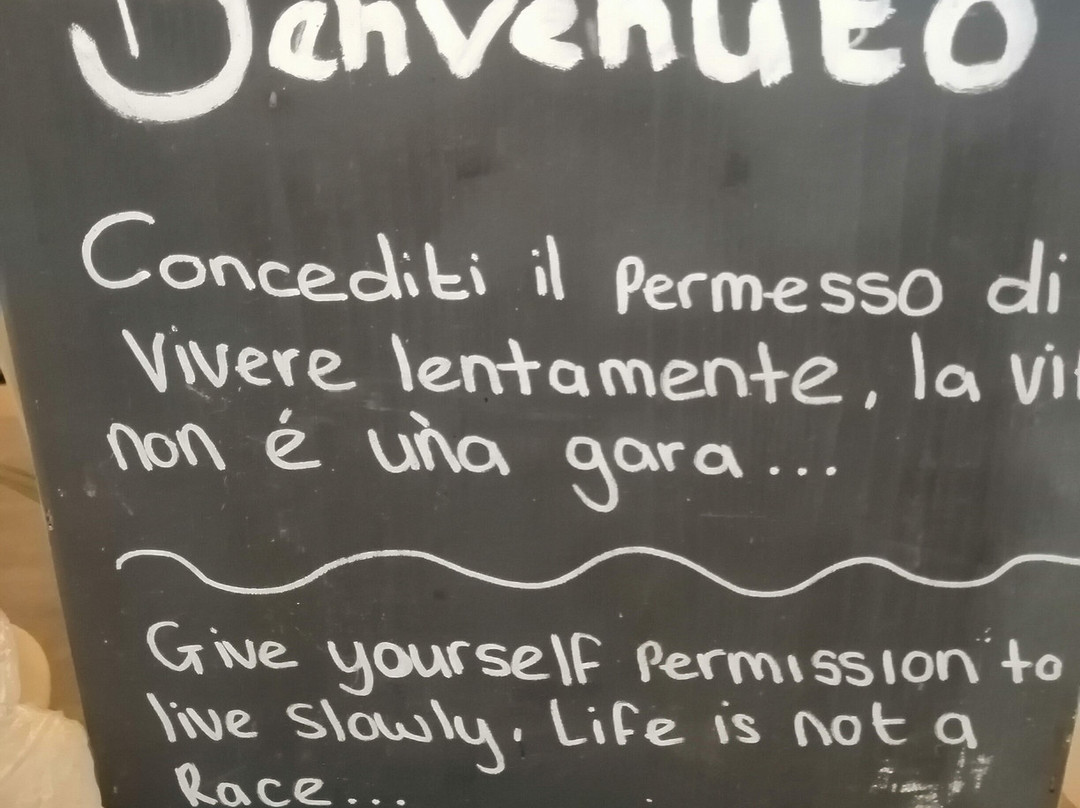 Benvenuto
Concediti il Permesso di
Vivere lentamente, la vit
non é uǹa gara...
Give yourself Permission to
live Slowly. Life is not a
Race...